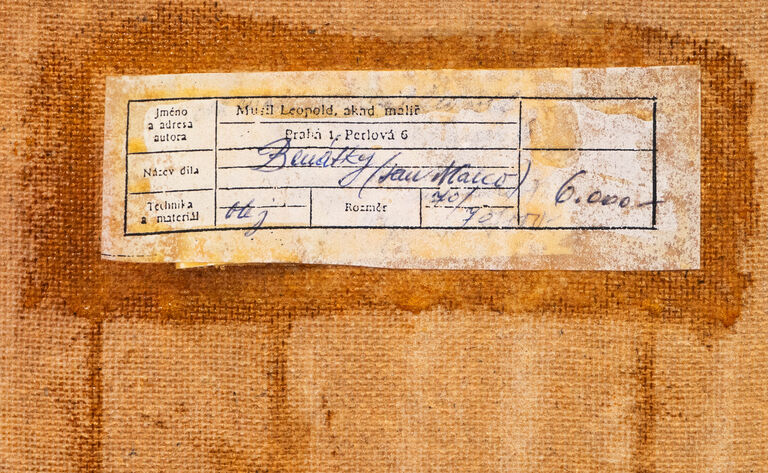 Jméno
a adresa
autora
Musil Leopold, akad. malíř
Praha 1, Perlová 6
Název díla
Benátky (San Marco)
6.000-
Technika
a materiál
olej
Rozměr
70/
70